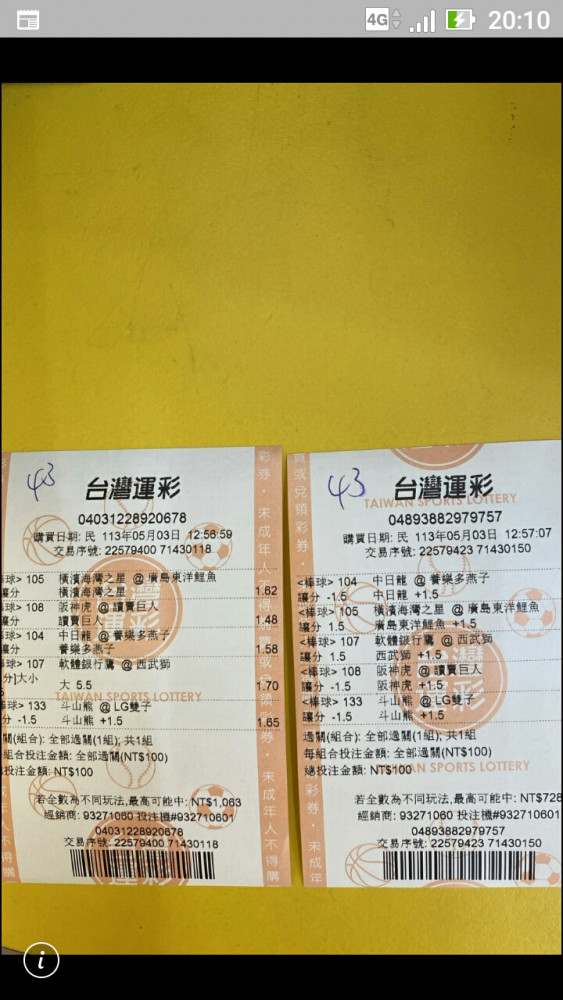 4G
20:10
43
台灣運彩
04031228920678
購買日期: 民 113年05月03日 12:56:59
交易序號: 22579400 71430118
棒球> 105 橫濱海灣之星 @ 廣島東洋鯉魚
讓分 橫濱海灣之星 1.62
棒球> 108 阪神虎 @ 讀賣巨人
讓分 讀賣巨人 1.48
棒球> 104 中日龍 @ 養樂多燕子
讓分 養樂多燕子 1.58
棒球> 107 軟體銀行鷹 @ 西武獅
分]大小
大 5.5 1.70
TAIWAN SPORTS LOTTERY
棒球> 133 斗山熊 @ LG雙子
分 -1.5 斗山熊 +1.5 1.65
過關(組合): 全部過關(1組); 共1組
組合投注金額: 全部過關(NT$100)
總投注金額: NT$100
若全數為不同玩法,最高可能中: NT$1,063
經銷商: 93271060 投注機#932710601
04031228920678
交易序號: 22579400 71430118
彩券・未成年人不得購
43
台灣運彩
TAIWAN SPORTS LOTTERY
04893882979757
購買日期: 民 113年05月03日 12:57:07
交易序號: 22579423 71430150
<棒球> 104 中日龍 @ 養樂多燕子
讓分 -1.5 中日龍 +1.5
<棒球> 105 橫濱海灣之星 @ 廣島東洋鯉魚
讓分 1.5 廣島東洋鯉魚 +1.5
<棒球> 107 軟體銀行鷹 @ 西武獅
讓分 1.5 西武獅 +1.5
<棒球> 108 阪神虎 @ 讀賣巨人
讓分 -1.5 阪神虎 +1.5
<棒球> 133 斗山熊 @ LG雙子
讓分 -1.5 斗山熊 +1.5
過關(組合): 全部過關(1組); 共1組
每組合投注金額: 全部過關(NT$100)
總投注金額: NT$100
TAIWAN SPORTS LOTTERY
若全數為不同玩法,最高可能中: NT$728
經銷商: 93271060 投注機#932710601
04893882979757
交易序號: 22579423 71430150